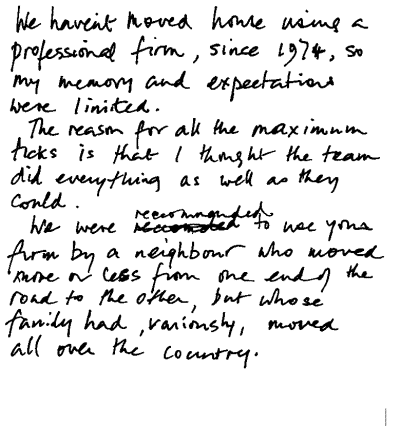 We haven't moved house using a
professional firm, since 1974, so
my memory and expectations
were limited.
The reason for all the maximum
ticks is that I thought the team
did everything as well as they
could.
recommended
We were to use your
firm by a neighbour who moved
more or less from one end of the
road to the other, but whose
family had, variously, moved
all over the country.